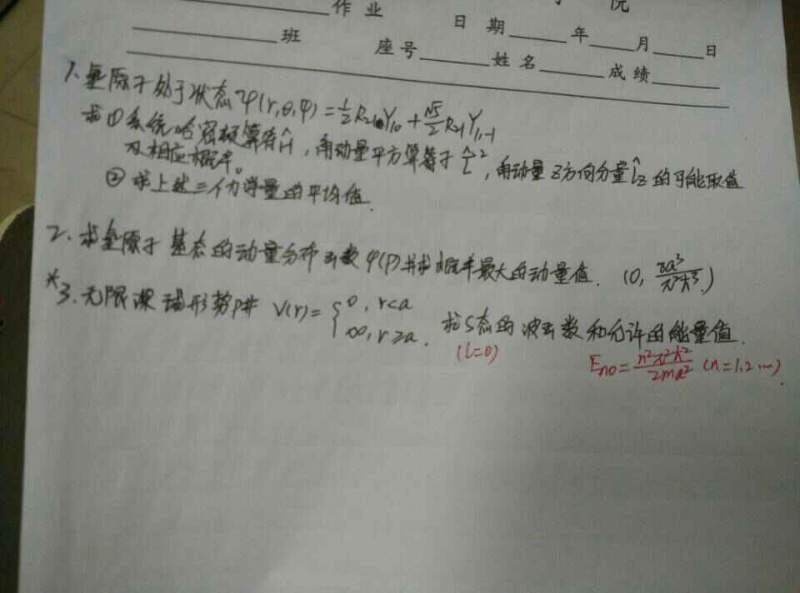 作业 日期____年____月____日
____班 座号____姓名____成绩____
1.氢原子处于状态ψ(r,θ,φ)=½R₂₁Y₁₀+√3/2 R₂₁Y₁₋₁
求①系统哈密顿算符Ĥ,角动量平方算符L̂²,角动量z方向分量L̂z的可能取值
及相应概率。
②求上述三个力学量的平均值.
2.求氢原子基态的动量分布函数φ(P)并求概率最大的动量值.
*3.无限深球形势阱 V(r)={0, r<a
∞, r≥a. 求S态的波函数和允许的能量值.
(l=0) Eₙ₀=n²π²ħ²/2ma² (n=1,2…).